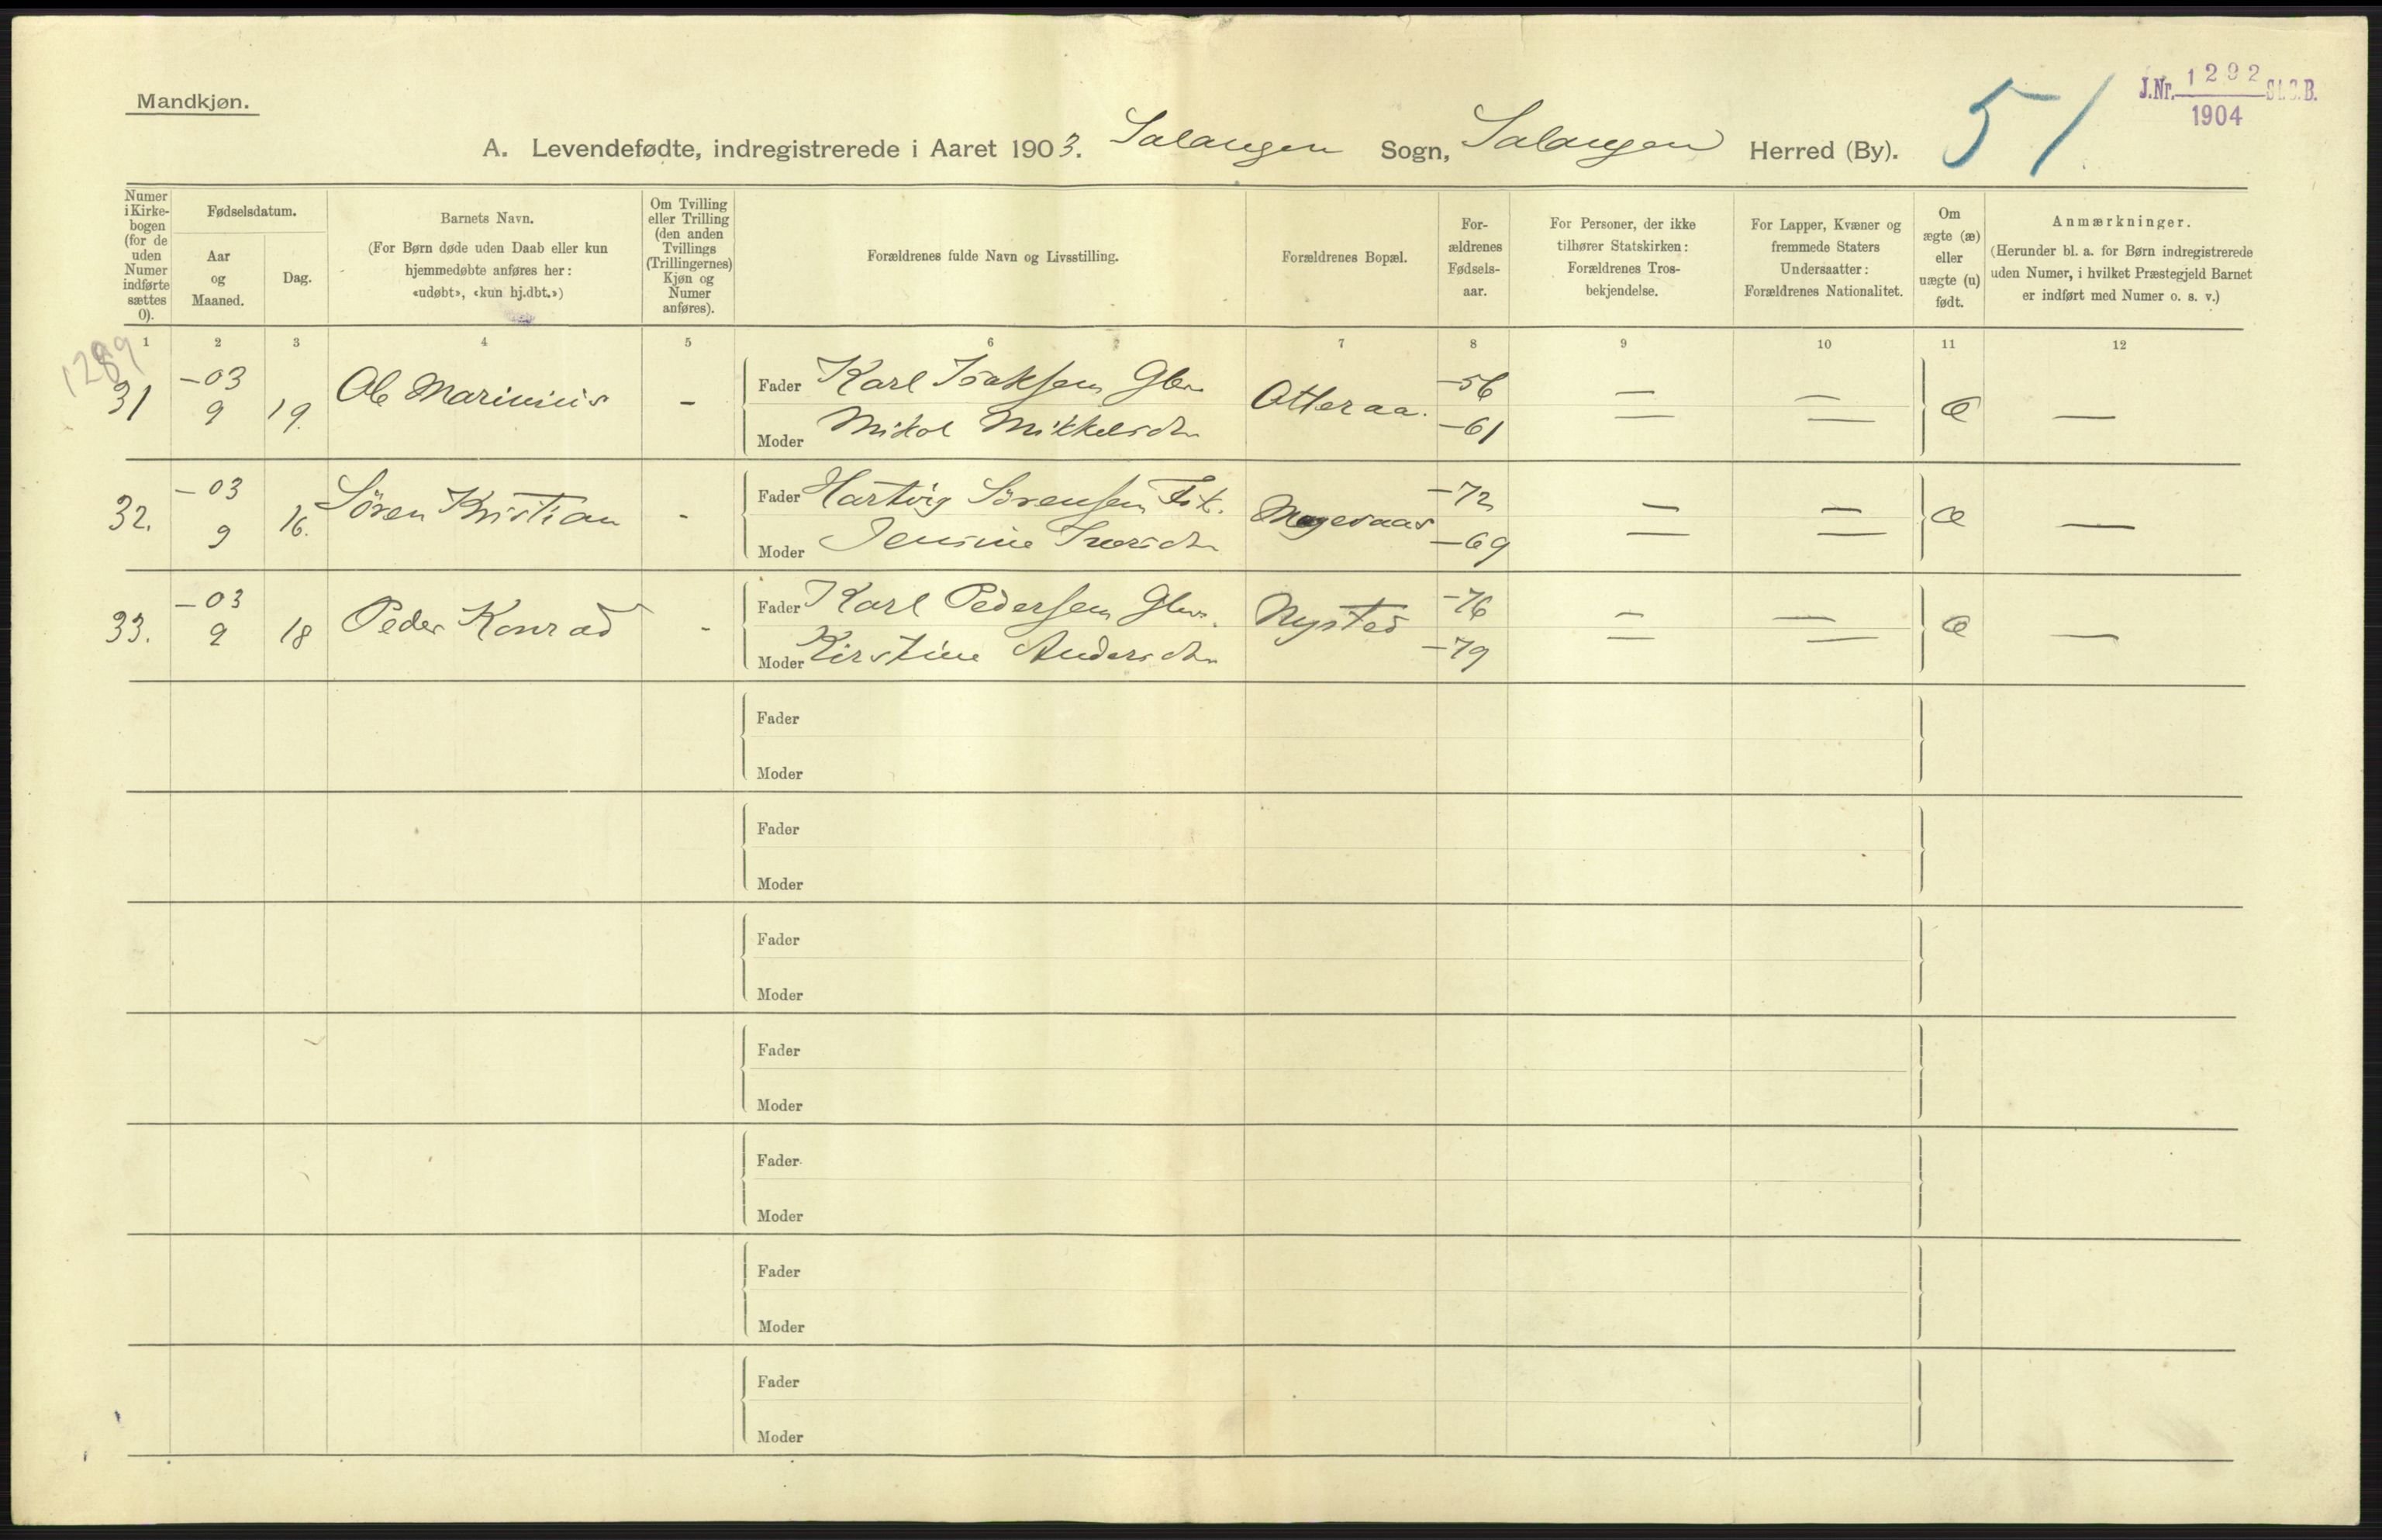 Mandkjøn.
J.Nr. 1292 St.C.B.
1904
51
A. Levendefødte, indregistrerede i Aaret 1903. Salangen Sogn, Salangen Herred (By).
Numer i Kirkebogen (for de uden Numer indførte sættes 0).
Fødselsdatum.
Aar og Maaned.
Dag.
Barnets Navn.
(For Børn døde uden Daab eller kun
hjemmedøbte anføres her:
«udøbt», «kun hj.dbt.»)
Om Tvilling
eller Trilling
(den anden
Tvillings
(Trillingernes)
Kjøn og
Numer
anføres).
Forældrenes fulde Navn og Livsstilling.
Forældrenes Bopæl.
For-
ældrenes
Fødsels-
aar.
For Personer, der ikke
tilhører Statskirken:
Forældrenes Tros-
bekjendelse.
For Lapper, Kvæner og
fremmede Staters
Undersaatter:
Forældrenes Nationalitet.
Om
ægte (æ)
eller
uægte (u)
født.
Anmærkninger.
(Herunder bl. a. for Børn indregistrerede
uden Numer, i hvilket Præstegjeld Barnet
er indført med Numer o. s. v.)
1 2 3 4 5 6 7 8 9 10 11 12
1289
31 –03 9 19. Ole Marinius –
Fader Karl Isaksen Gbr. Otteraa. –56 — — æ —
Moder Nikol Mikkelsdtr –61 — —
32. –03 9 16. Sören Kristian -
Fader Hartvig Sörensen Fisk. –72 — — æ —
Moder Jensine Iversdtr –69 — —
33. –03 9 18 Peder Konrad -
Fader Karl Pedersen Gbr. Nysted –76 — — æ —
Moder Kirstine Andersdtr –79 — —
Fader
Moder
Fader
Moder
Fader
Moder
Fader
Moder
Fader
Moder
Fader
Moder
Fader
Moder